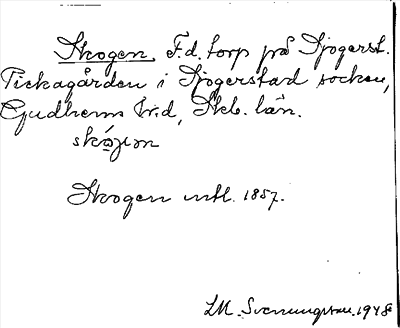 Skogen F.d. torp på Sjogerst.
Tickagården i Sjogerstad socken,
Gudhems hd, Skb. län.
skó̱jεn
Skogen utl. 1857.
LM. Svenungsson. 1948